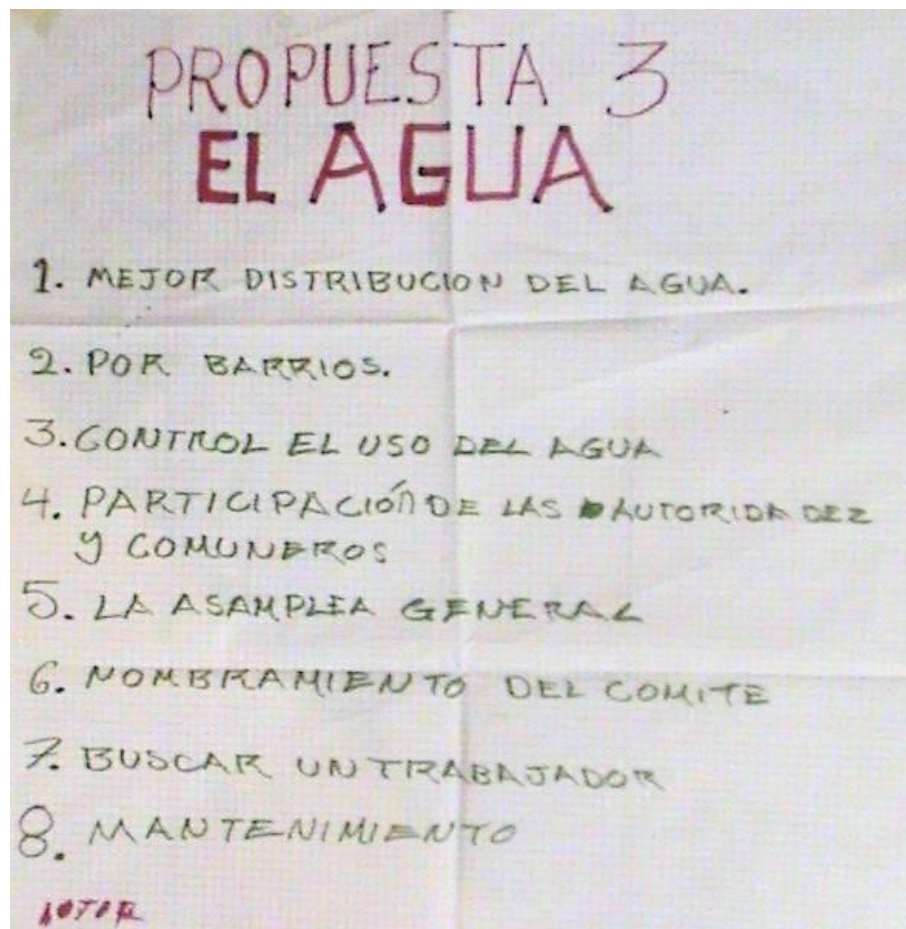 PROPUESTA 3
EL AGUA
1. MEJOR DISTRIBUCION DEL AGUA.
2. POR BARRIOS.
3. CONTROL EL USO DEL AGUA
4. PARTICIPACIÓN DE LAS AUTORIDADEZ
Y COMUNEROS
5. LA ASAMPLEA GENERAL
6. NOMBRAMIENTO DEL COMITE
7. BUSCAR UN TRABAJADOR
8. MANTENIMIENTO